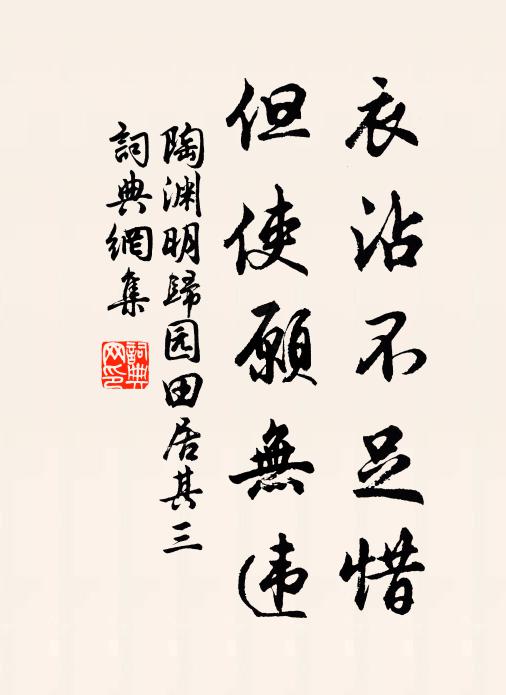 衣沾不足惜
但使願無违
陶渊明歸园田居其三
詞典網集
詞典網印